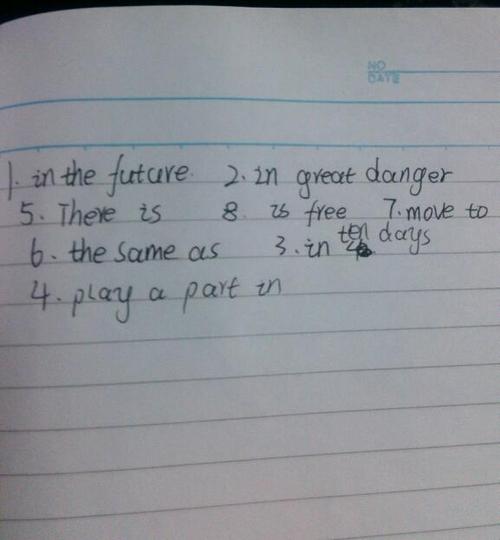 NO
DATE
1. in the future. 2. in great danger
5. There is 8. is free 7. move to
6. the same as 3. in ten days
4. play a part in